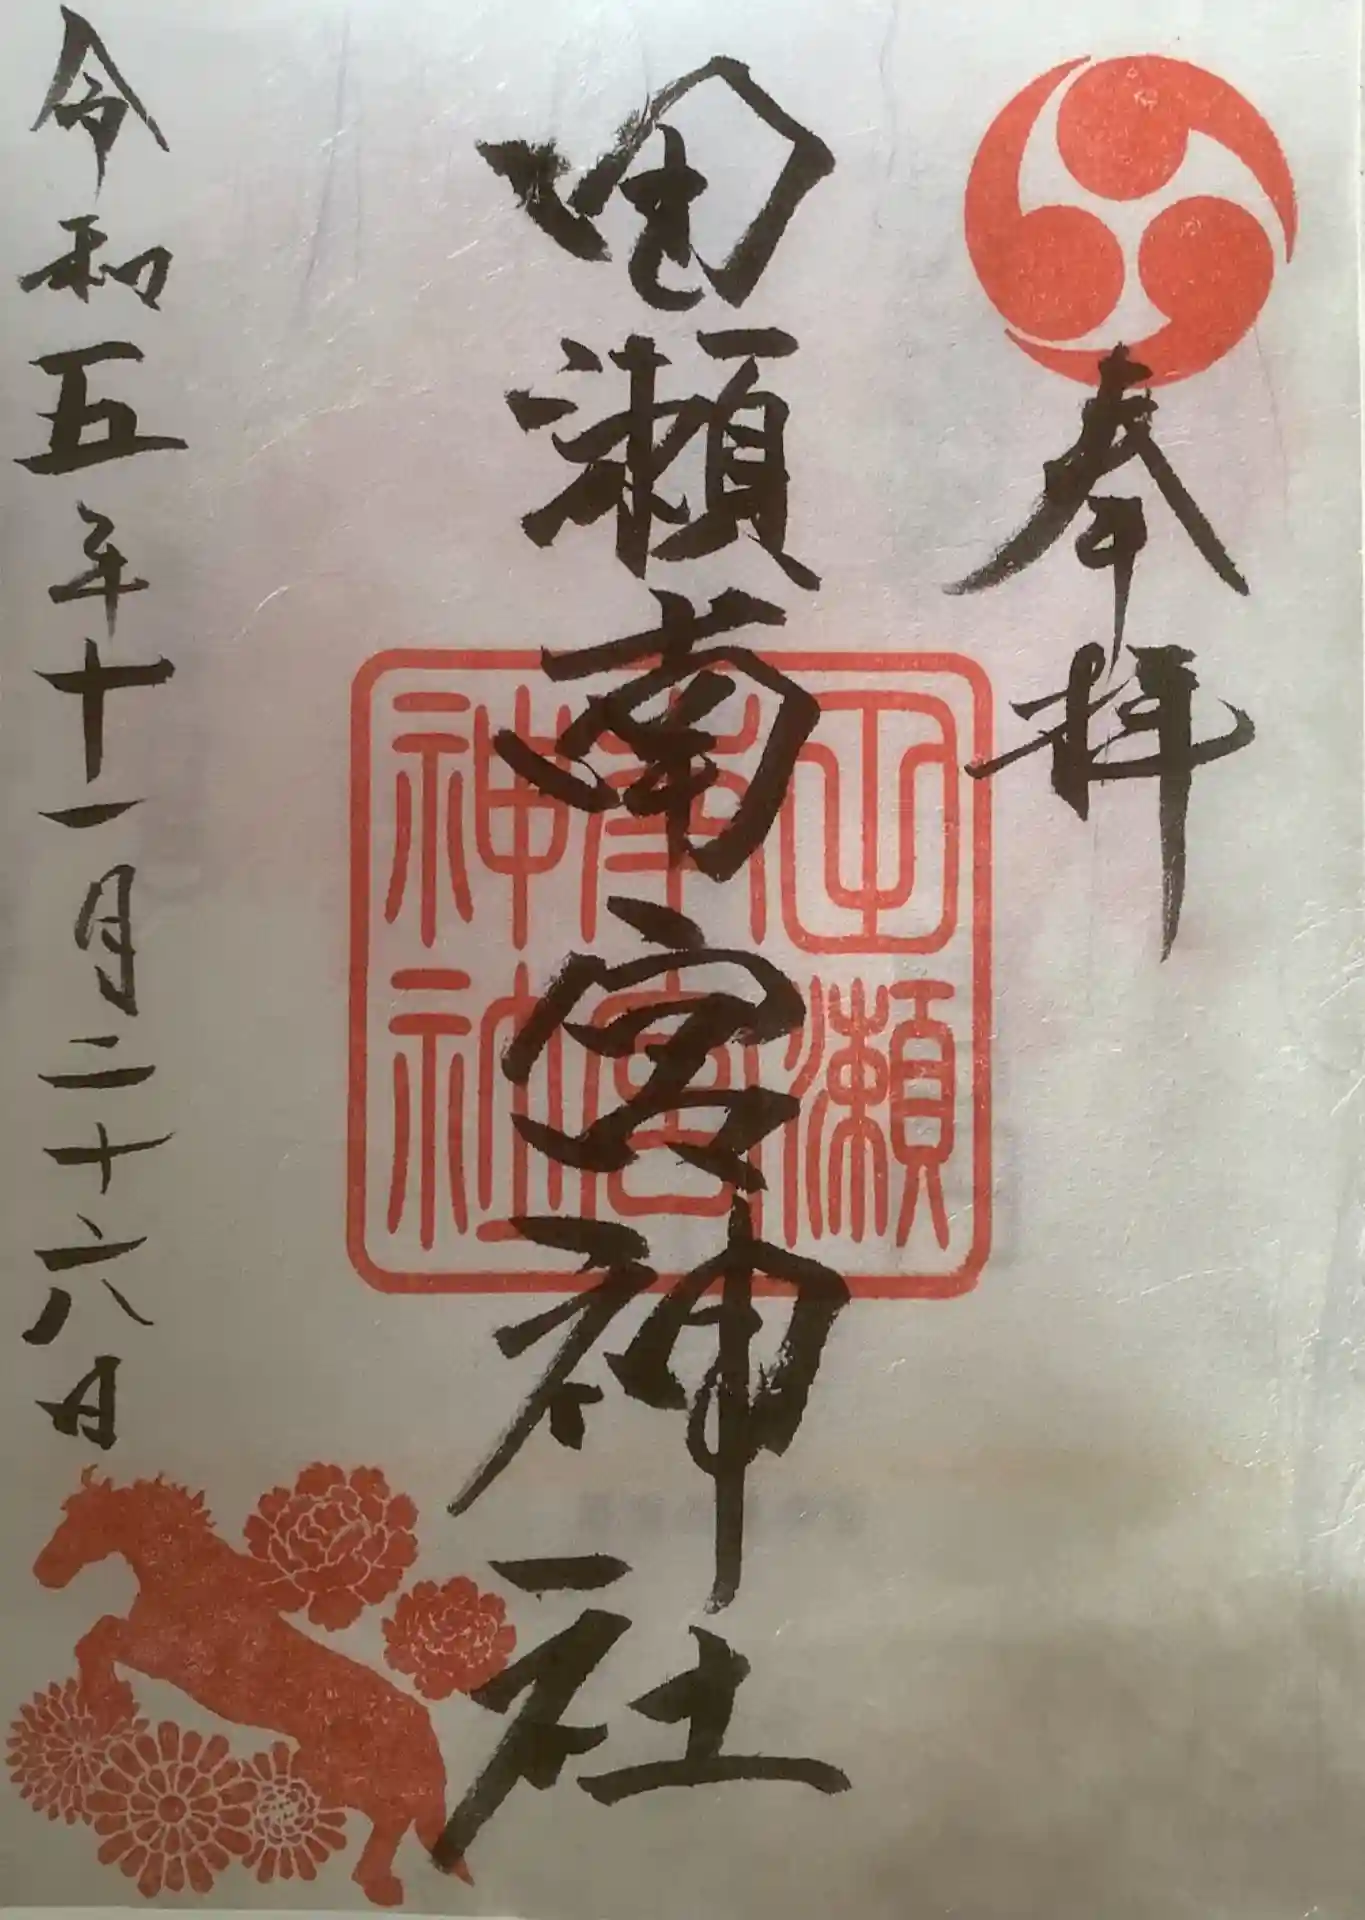 奉拝
田瀬南宮神社
田瀬
南宮
神社
令和五年十一月二十六日